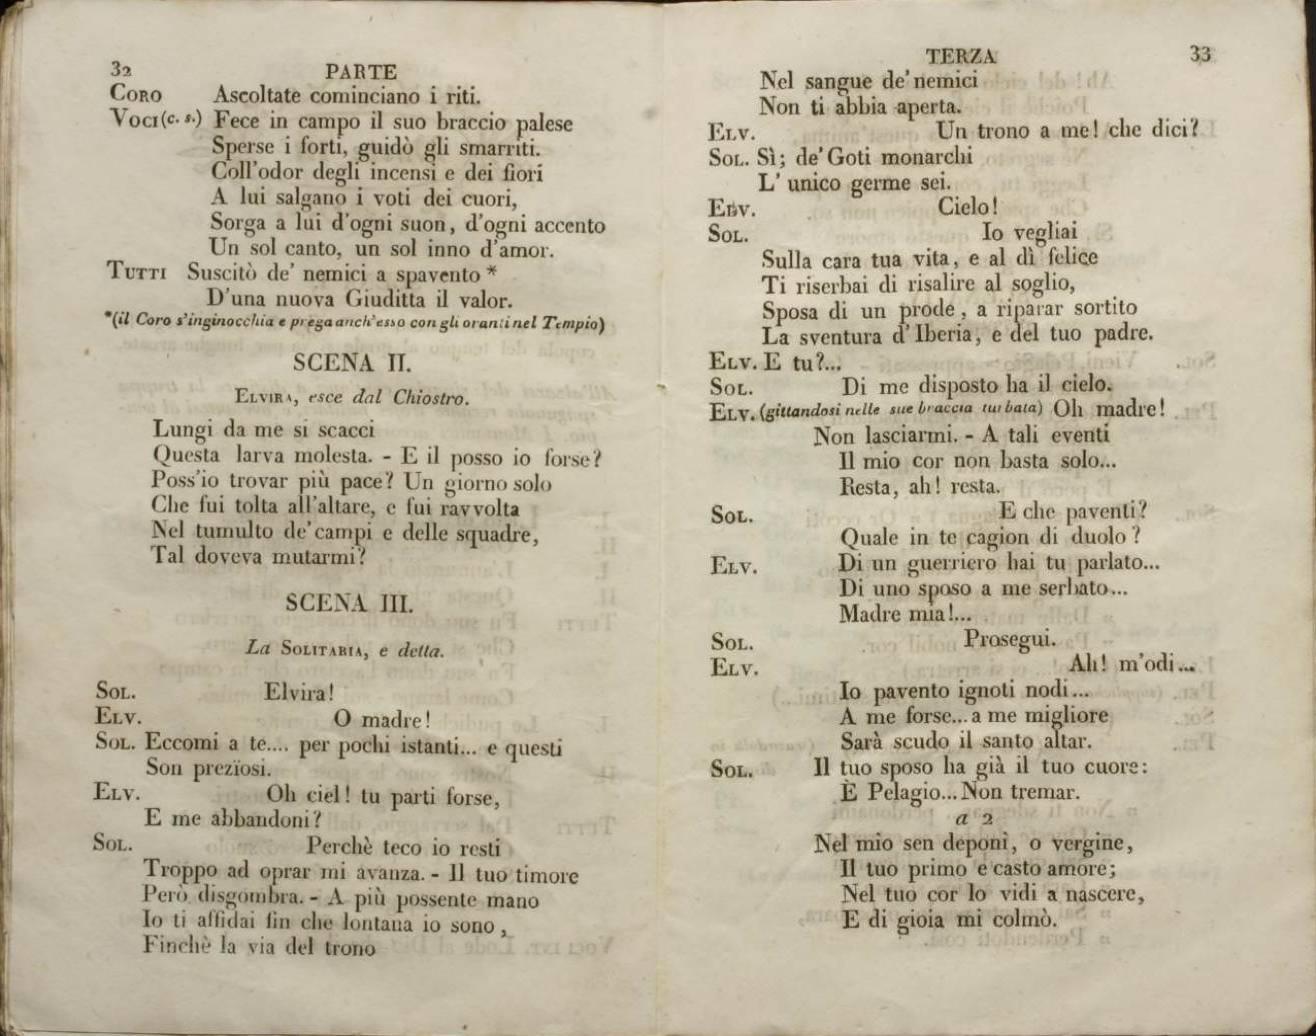 32 PARTE
CORO Ascoltate cominciano i riti.
VOCI (c. s.) Fece in campo il suo braccio palese
Sperse i forti, guidò gli smarriti.
Coll'odor degli incensi e dei fiori
A lui salgano i voti dei cuori,
Sorga a lui d'ogni suon, d'ogni accento
Un sol canto, un sol inno d'amor.
TUTTI Suscitò de' nemici a spavento *
D'una nuova Giuditta il valor.
*(il Coro s'inginocchia e prega anch'esso con gli oranti nel Tempio)
SCENA II.
ELVIRA, esce dal Chiostro.
Lungi da me si scacci
Questa larva molesta. - E il posso io forse?
Poss'io trovar più pace? Un giorno solo
Che fui tolta all'altare, e fui ravvolta
Nel tumulto de' campi e delle squadre,
Tal doveva mutarmi?
SCENA III.
La SOLITARIA, e detta.
SOL. Elvira!
ELV. O madre!
SOL. Eccomi a te.... per pochi istanti... e questi
Son prezïosi.
ELV. Oh ciel! tu parti forse,
E me abbandoni?
SOL. Perchè teco io resti
Troppo ad oprar mi avanza. - Il tuo timore
Però disgombra. - A più possente mano
Io ti affidai fin che lontana io sono,
Finchè la via del trono
TERZA 33
Nel sangue de' nemici
Non ti abbia aperta.
ELV. Un trono a me! che dici?
SOL. Sì; de' Goti monarchi
L' unico germe sei.
ELV. Cielo!
SOL. Io vegliai
Sulla cara tua vita, e al dì felice
Ti riserbai di risalire al soglio,
Sposa di un prode, a riparar sortito
La sventura d' Iberia, e del tuo padre.
ELV. E tu?...
SOL. Di me disposto ha il cielo.
ELV. (gittandosi nelle sue braccia turbata) Oh madre!
Non lasciarmi. - A tali eventi
Il mio cor non basta solo...
Resta, ah! resta.
SOL. E che paventi?
Quale in te cagion di duolo?
ELV. Di un guerriero hai tu parlato...
Di uno sposo a me serbato...
Madre mia!...
SOL. Prosegui.
ELV. Ah! m'odi...
Io pavento ignoti nodi...
A me forse... a me migliore
Sarà scudo il santo altar.
SOL. Il tuo sposo ha già il tuo cuore:
È Pelagio... Non tremar.
a 2
Nel mio sen deponi, o vergine,
Il tuo primo e casto amore;
Nel tuo cor lo vidi a nascere,
E di gioia mi colmò.